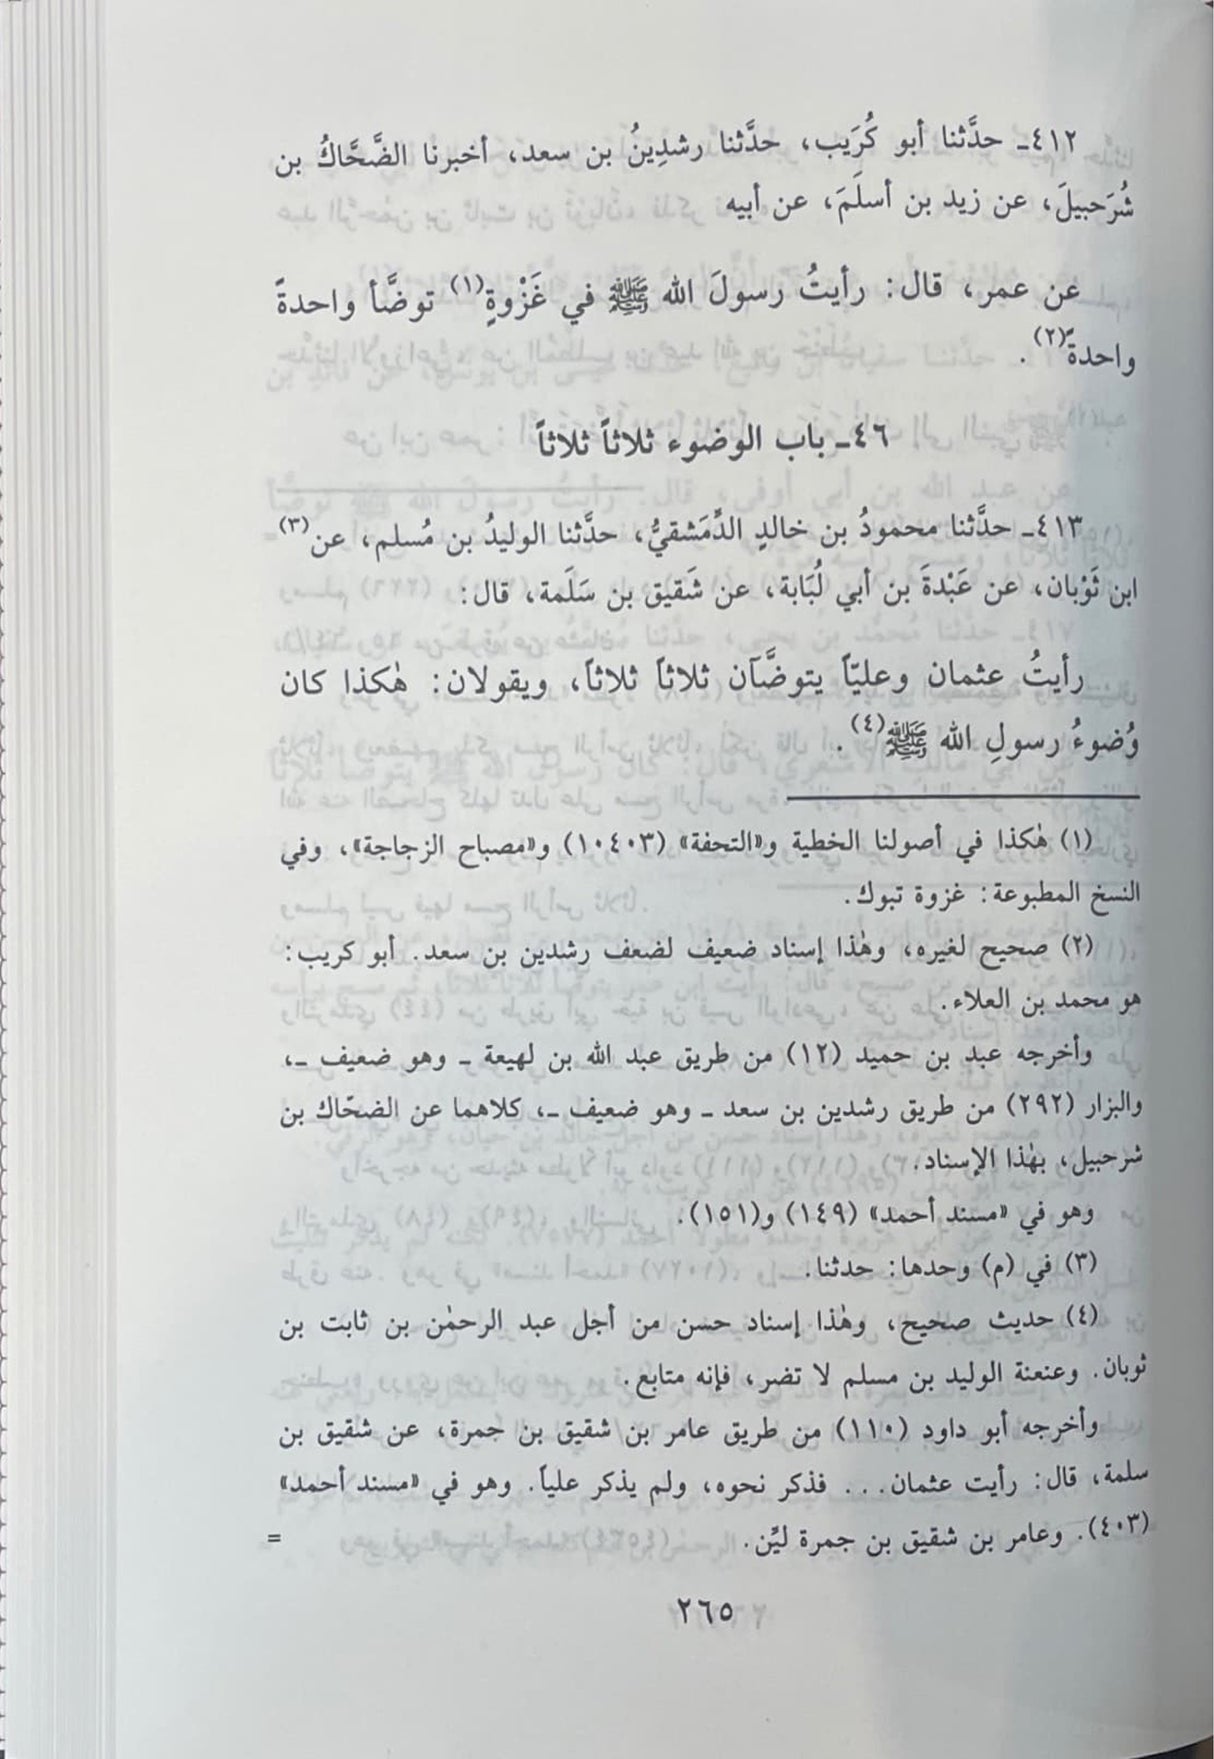 ٤١٢ـ حدَّثنا أبو كُرَيب، حدَّثنا رشدِينُ بن سعد، أخبرنا الضَّحَّاكُ بن
شُرَحبيلَ، عن زيد بن أسلَمَ، عن أبيه
عن عمر، قال: رأيتُ رسولَ الله ﷺ في غَزْوةٍ(١) توضَّأ واحدةً
واحدةً(٢).
٤٦ـ باب الوضوء ثلاثاً ثلاثاً
٤١٣ـ حدَّثنا محمودُ بن خالدٍ الدِّمَشقيُّ، حدَّثنا الوليدُ بن مُسلم، عن(٣)
ابن ثَوْبان، عن عَبْدةَ بن أبي لُبَابة، عن شَقيق بن سَلَمة، قال:
رأيتُ عثمان وعليّاً يتوضَّآن ثلاثاً ثلاثاً، ويقولان: هٰكذا كان
وُضوءُ رسولِ الله ﷺ(٤).
(١) هٰكذا في أصولنا الخطية و«التحفة» (١٠٤٠٣) و«مصباح الزجاجة»، وفي
النسخ المطبوعة: غزوة تبوك.
(٢) صحيح لغيره، وهٰذا إسناد ضعيف لضعف رشدين بن سعد. أبو كريب:
هو محمد بن العلاء.
وأخرجه عبد بن حميد (١٢) من طريق عبد الله بن لهيعة ـ وهو ضعيف ـ،
والبزار (٢٩٢) من طريق رشدين بن سعد ـ وهو ضعيف ـ، كلاهما عن الضحّاك بن
شرحبيل، بهٰذا الإسناد.
وهو في «مسند أحمد» (١٤٩) و(١٥١).
(٣) في (م) وحدها: حدثنا.
(٤) حديث صحيح، وهٰذا إسناد حسن من أجل عبد الرحمٰن بن ثابت بن
ثوبان. وعنعنة الوليد بن مسلم لا تضر، فإنه متابع.
وأخرجه أبو داود (١١٠) من طريق عامر بن شقيق بن جمرة، عن شقيق بن
سلمة، قال: رأيت عثمان... فذكر نحوه، ولم يذكر علياً. وهو في «مسند أحمد»
(٤٠٣). وعامر بن شقيق بن جمرة ليِّن. =
٢٦٥